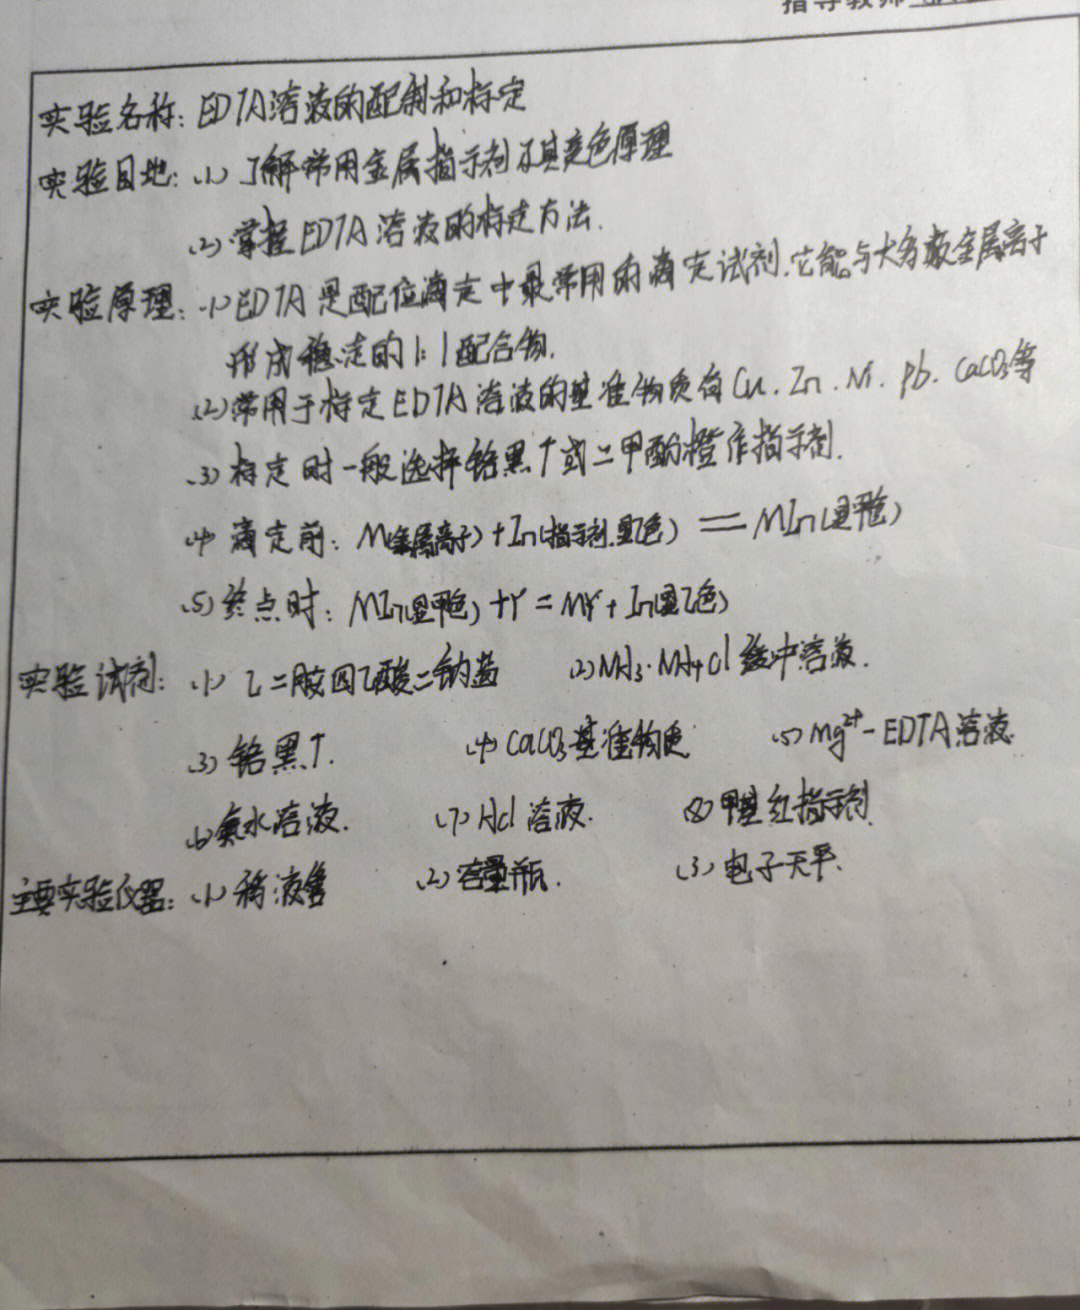 指导教师
实验名称: EDTA溶液的配制和标定
实验目地: (1) 了解常用金属指示剂及其变色原理
(2) 掌握EDTA溶液的标定方法.
实验原理: (1) EDTA是配位滴定中最常用的滴定试剂.它能与大多数金属离子
形成稳定的1:1配合物.
(2) 常用于标定EDTA溶液的基准物质有Cu. Zn. Ni. Pb. CaCO3等
(3) 标定时一般选择铬黑T或二甲酚橙作指示剂.
(4) 滴定前: M(金属离子)+In(指示剂.显乙色) = MIn(显甲色)
(5) 终点时: MIn(显甲色)+Y = MY + In(显乙色)
实验试剂: (1) 乙二胺四乙酸二钠盐 (2) NH3·NH4Cl缓冲溶液.
(3) 铬黑T. (4) CaCO3基准物质 (5) Mg2+-EDTA溶液.
(6) 氨水溶液. (7) HCl溶液. (8) 甲基红指示剂
主要实验仪器: (1) 移液管 (2) 容量瓶. (3) 电子天平.